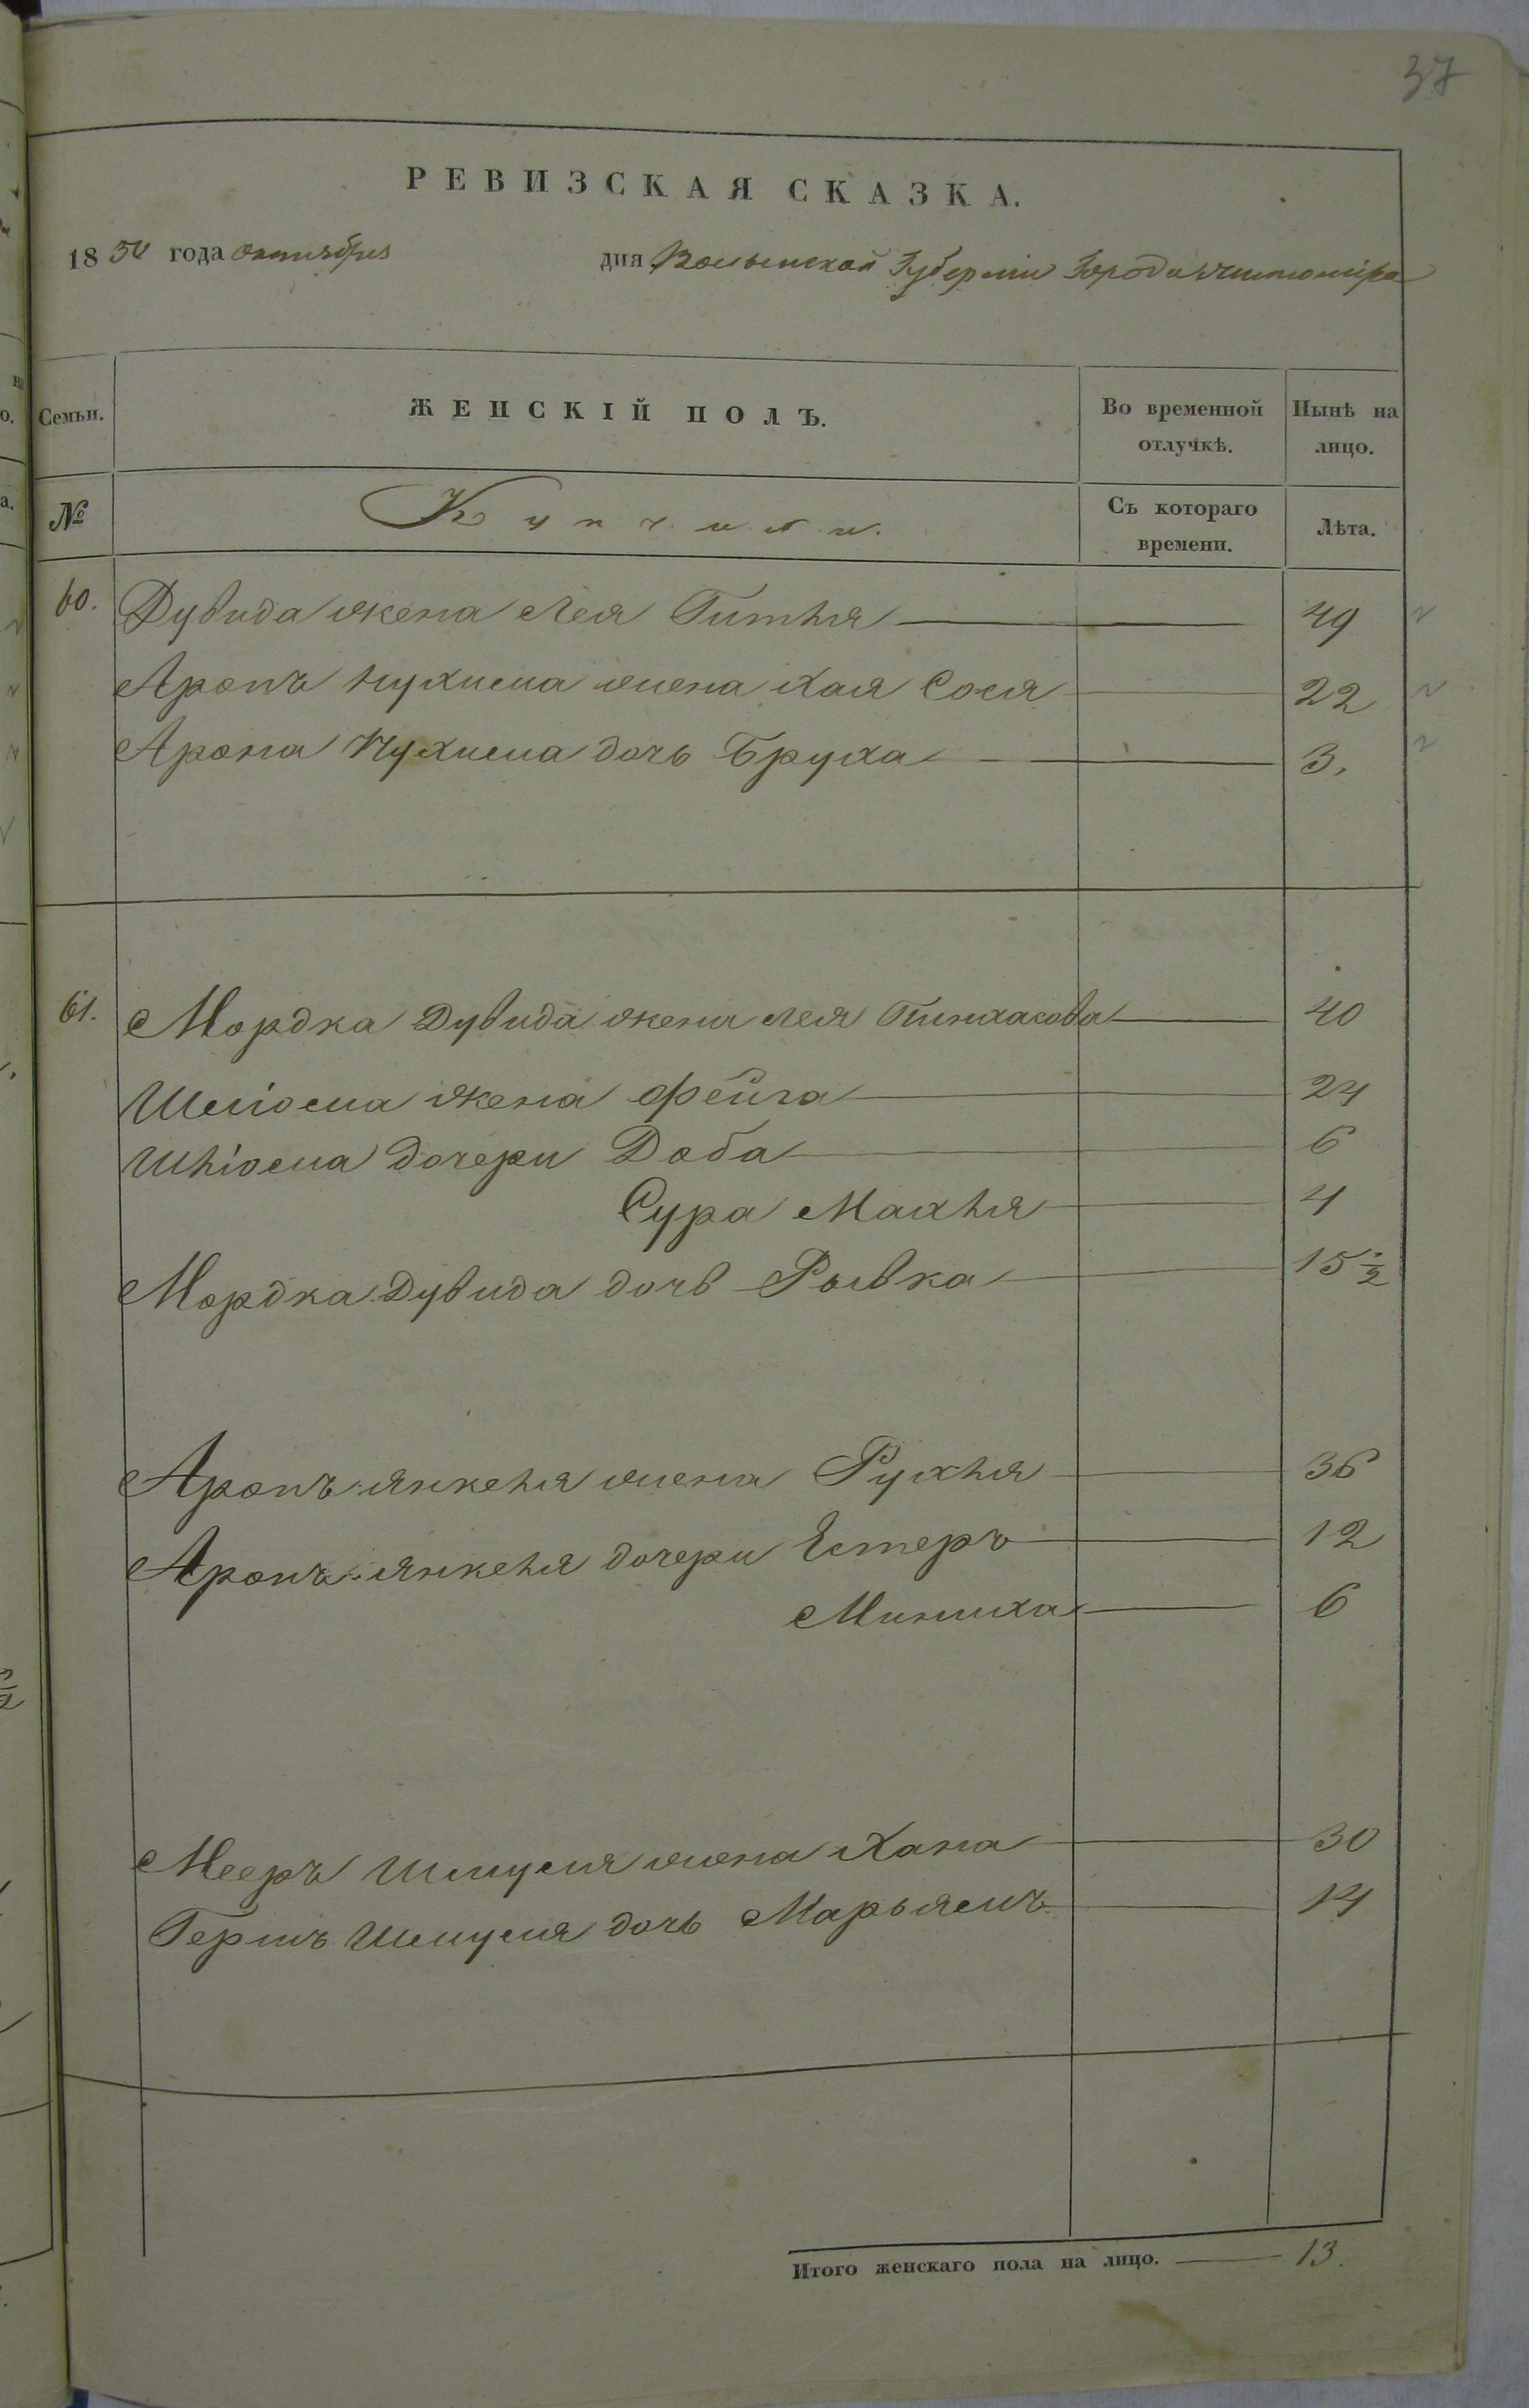 37
РЕВИЗСКАЯ СКАЗКА.
1850 года октября дня Волынской Губерніи Города Житомира
Семьи. ЖЕНСКІЙ ПОЛЪ. Во временной отлучкѣ. Нынѣ на лицо.
№ Съ котораго времени. Лѣта.
60. Дувида жена Лея Гитля 49
Аронъ Нухима жена Хая Сося 22
Арона Нухима дочь Бруха 3.
61. Мордка Дувида жена Лея Пинхасова 40
Шліома жена Фейга 24
Шліома дочери Доба 6
Сура Махля 4
Мордка Дувида дочь Рывка 15 1/2
Аронъ Янкеля жена Рухля 36
Аронъ Янкеля дочери Естеръ 12
Миниха 6
Мееръ Шмуля жена Хана 30
Гершъ Шмуля дочь Марьямъ 14
Итого женскаго пола на лицо. 13.